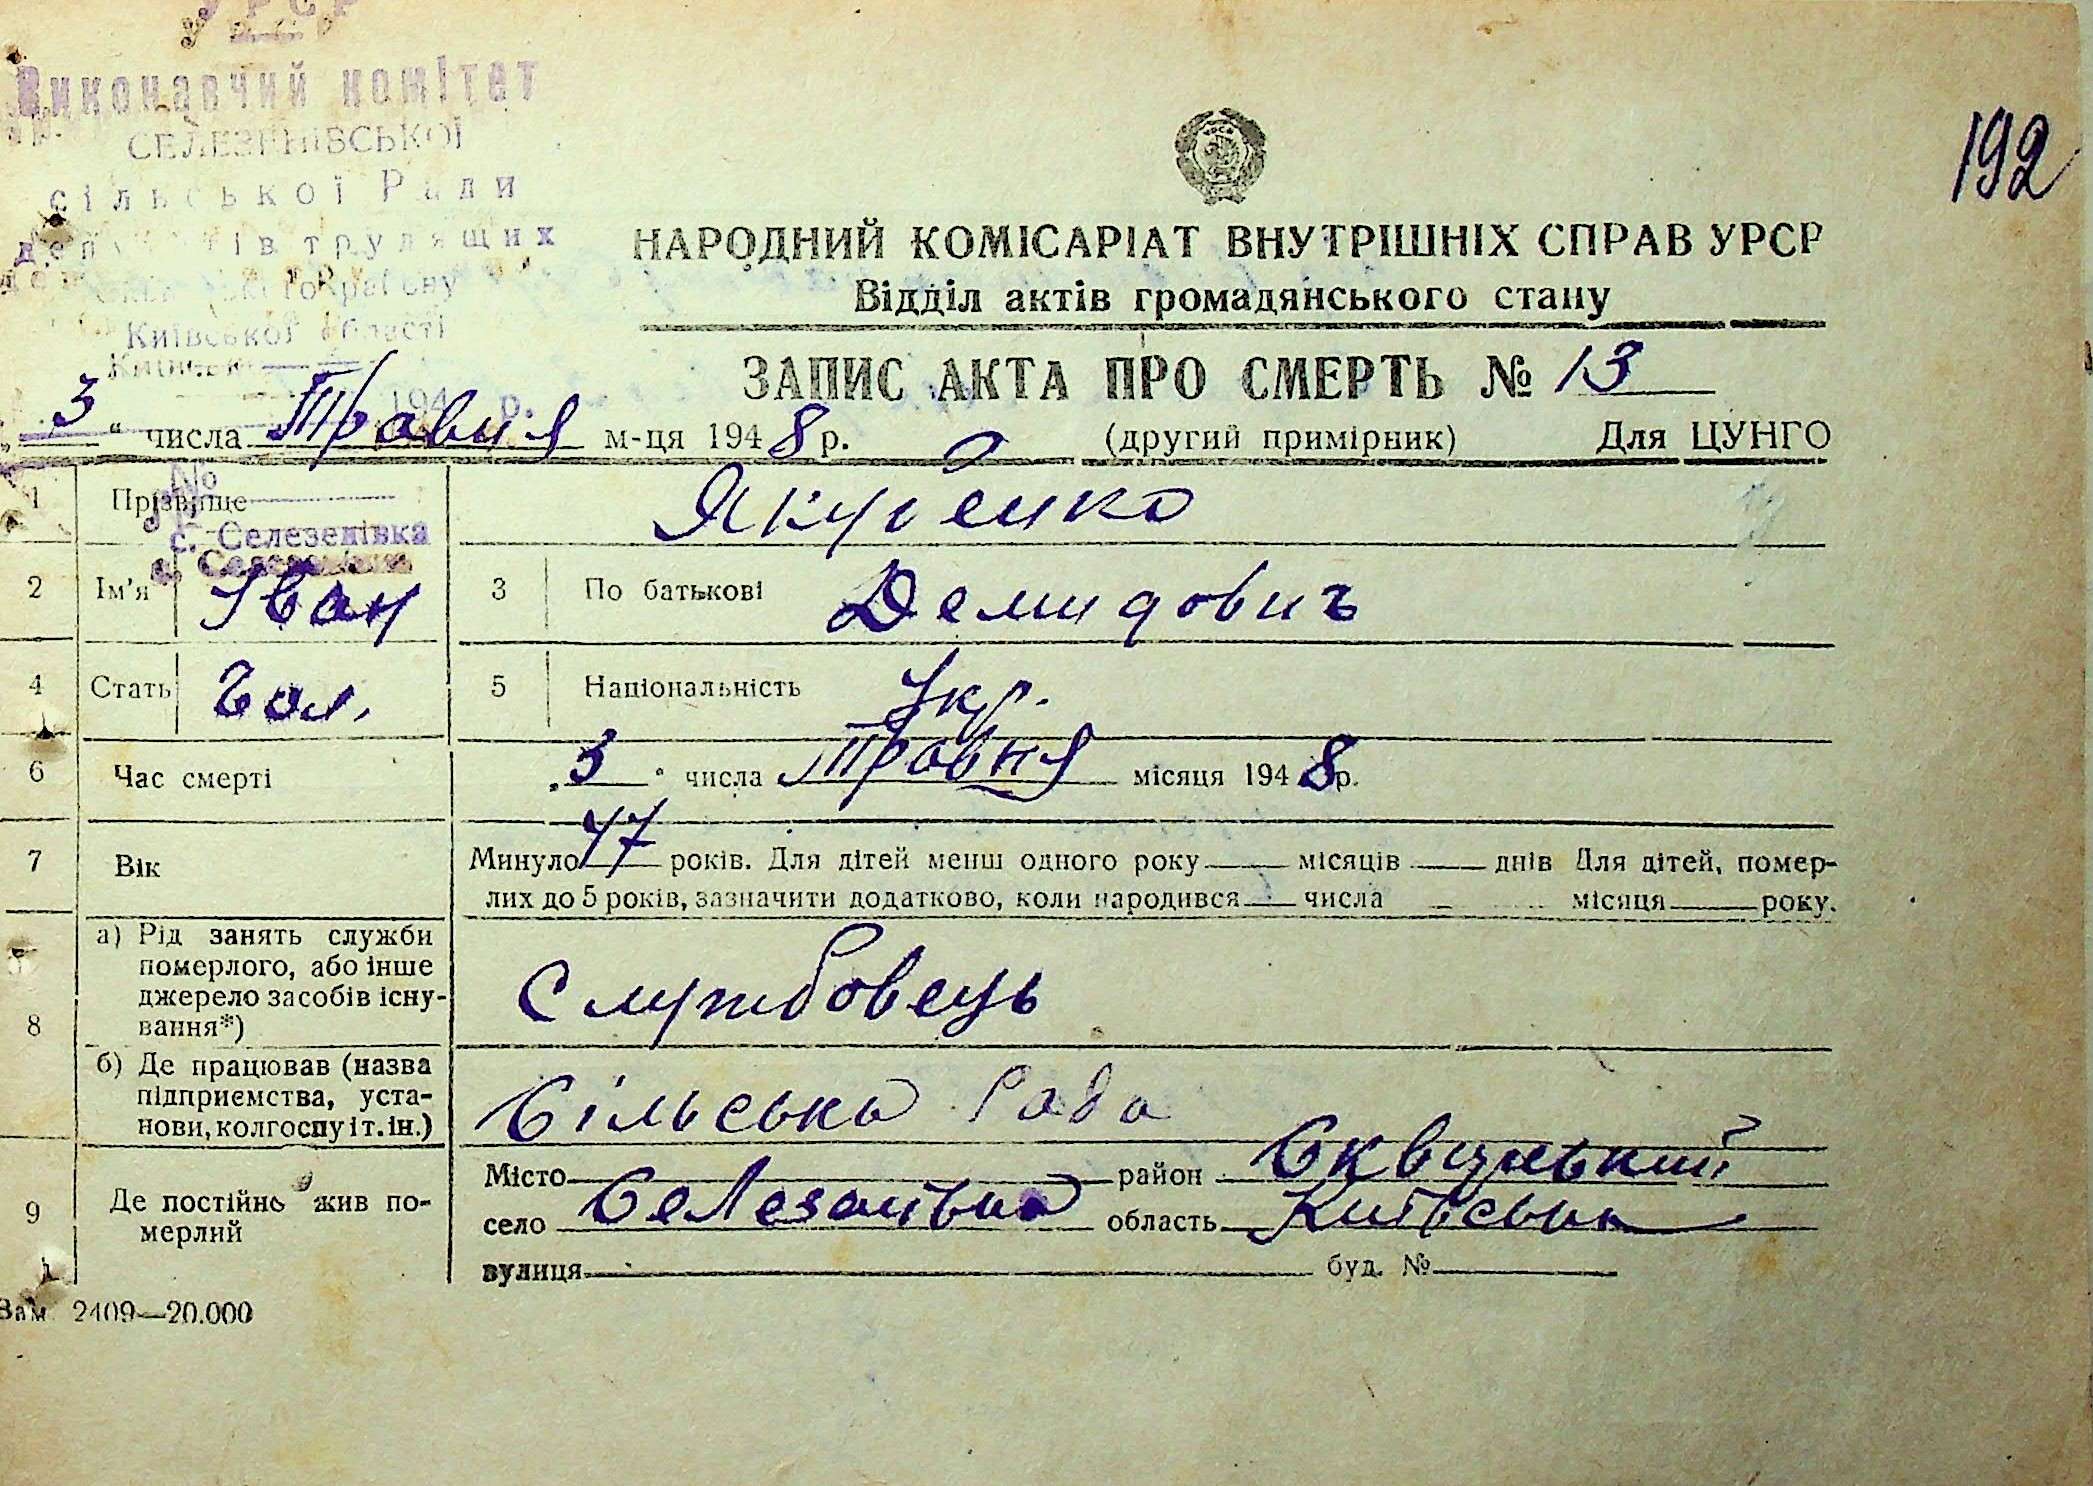 УРСР
Виконавчий комітет
СЕЛЕЗЕНІВСЬКОЇ
сільської Ради
депутатів трудящих
району
Київської області
192
НАРОДНИЙ КОМІСАРІАТ ВНУТРІШНІХ СПРАВ УРСР
Відділ актів громадянського стану
ЗАПИС АКТА ПРО СМЕРТЬ № 13
„3“ числа Травня м-ця 1948 р. (другий примірник) Для ЦУНГО
№
1 Прізвище Якубенко
с. Селезенівка
2 Ім'я Іван 3 По батькові Демидович
4 Стать Чол. 5 Національність Укр.
6 Час смерті „3“ числа Травня місяця 1948 р.
7 Вік Минуло 47 років. Для дітей менш одного року місяців днів Для дітей, помер-
лих до 5 років, зазначити додатково, коли народився числа місяця року.
8 а) Рід занять служби
померлого, або інше
джерело засобів існу-
вання*) Службовець
б) Де працював (назва
підприємства, уста-
нови, колгоспу і т. ін.) Сільська Рада
9 Де постійно жив по-
мерлий
Місто район Сквирський
село Селезенівка область Київська
вулиця буд. №
Зам. 2409—20.000